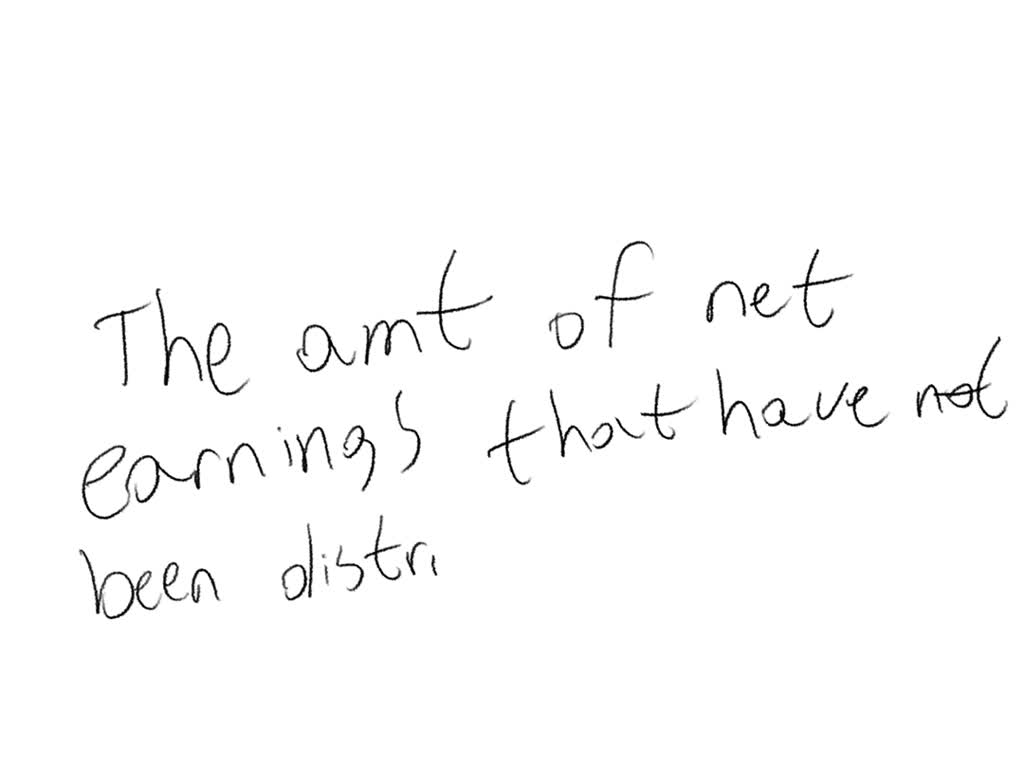 The amt of net
earnings that have not
been distri